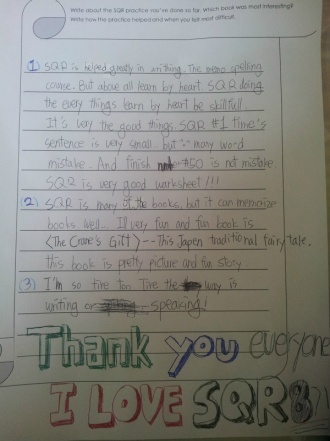 Write about the SQR practice you've done so far. which book was most interesting?
Write how the practice helped and when you felt most difficult.
① SQR is helped greatly in writhing. The memo spelling
course. But above all learn by heart. SQR doing
the every things learn by heart be skillfull.
It's very the good things. SQR #1 time's
sentence is very small.. but many word
mistake. And finish #50 is not mistake.
SQR is very good worksheet!!!
② SQR is many of the books. but it can memorize
books well... Ill very fun and fun book is
<The Crane's Gift>--This Japen traditional fairy tale.
this book is pretty picture and fun story
③ I'm so tire too. Tire the way is
writing or speaking!
Thank you everyone
I LOVE SQR